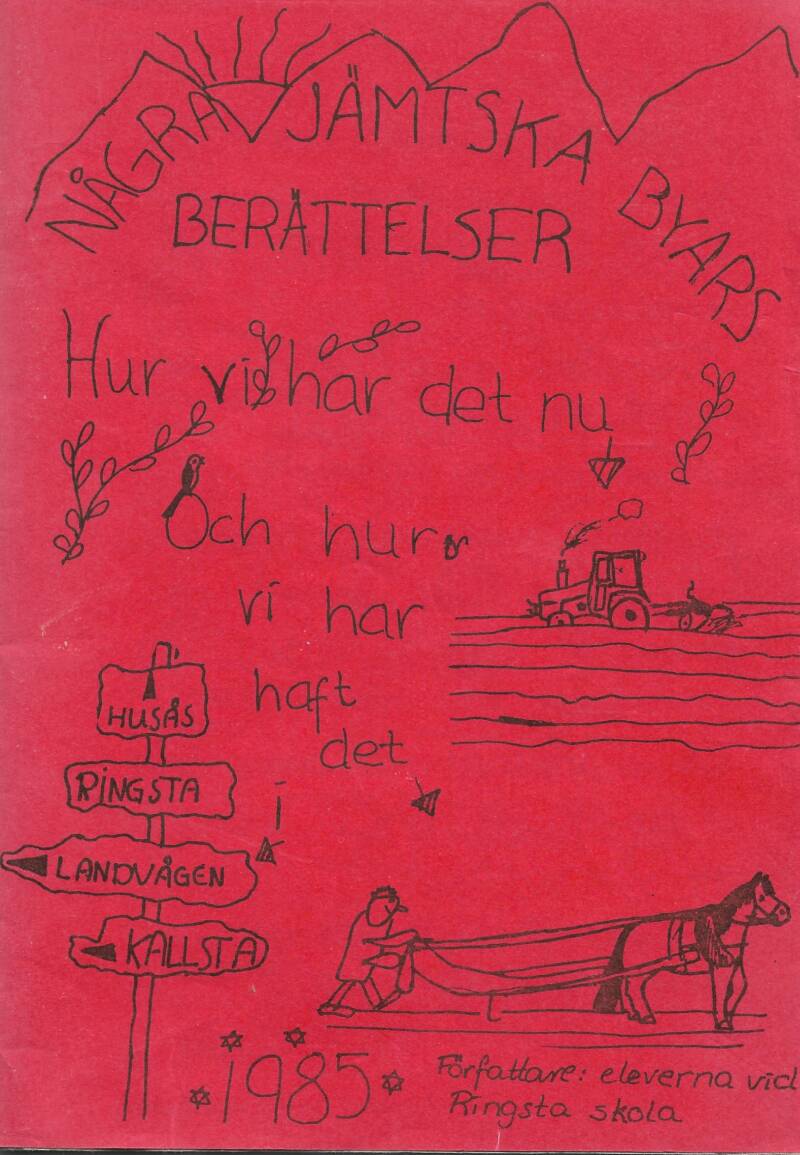 NÅGRA JÄMTSKA BYARS
BERÄTTELSER
Hur vi har det nu
Och hur
vi har
haft
det
i
HUSÅS
RINGSTA
LANDVÅGEN
KALLSTA
1985
Författare: eleverna vid
Ringsta skola